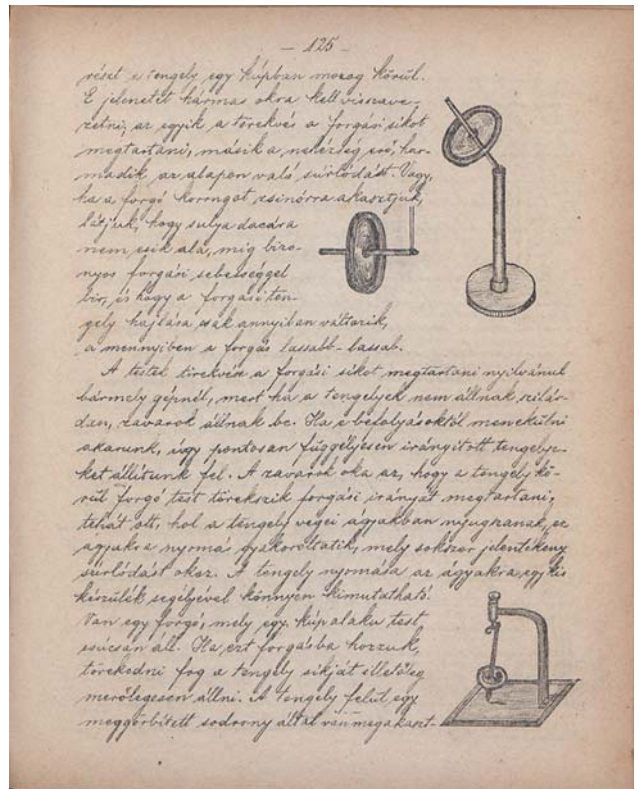 - 125 -
részt e tengely egy kúpban mozog körül.
E jelenetet hármas okra kell visszave-
zetni; az egyik a törekvés a forgási síkot
megtartani, másik a nehézség erő, har-
madik az alapon való súrlódást. Vagy,
ha a forgó korongot zsinórra akasztjuk,
látjuk, hogy sulya dacára
nem esik alá, míg bizo-
nyos forgási sebességgel
bir, és hogy a forgási ten-
gely hajlása csak annyiban változik,
a mennyiben a forgás lassabb-lassab.
A testek törekvése a forgási síkot megtartani nyilvánul
bármely gépnél, mert ha a tengelyek nem állnak szilár-
dan, zavarok állnak be. Ha e befolyásoktól menekülni
akarunk, úgy pontosan függélyesen irányított tengelye-
ket állítunk fel. A zavarok oka az, hogy a tengely kö-
rül forgó test törekszik forgási irányát megtartani;
tehát ott, hol a tengely végei ágyakban nyugszanak, ez
ágyakra nyomás gyakoroltatik, mely sokszor jelentékeny
súrlódást okoz. A tengely nyomása az ágyakra egy kis
készülék segélyével könnyen kimutatható.
Van egy forgó, mely egy kúp alaku test
csúcsán áll. Ha ezt forgásba hozzuk,
törekedni fog a tengely síkját illetőleg
merőlegesen állni. A tengely felül egy
meggörbített sodrony által van megakaszt-